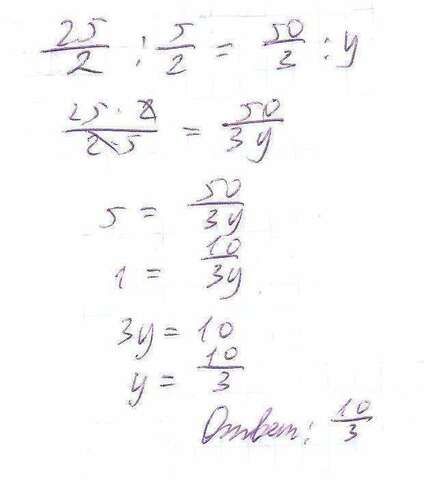 25/2 : 5/2 = 50/3 : y
25 · 2 / 2 · 5 = 50/3y
5 = 50/3y
1 = 10/3y
3y = 10
y = 10/3
Ответ: 10/3